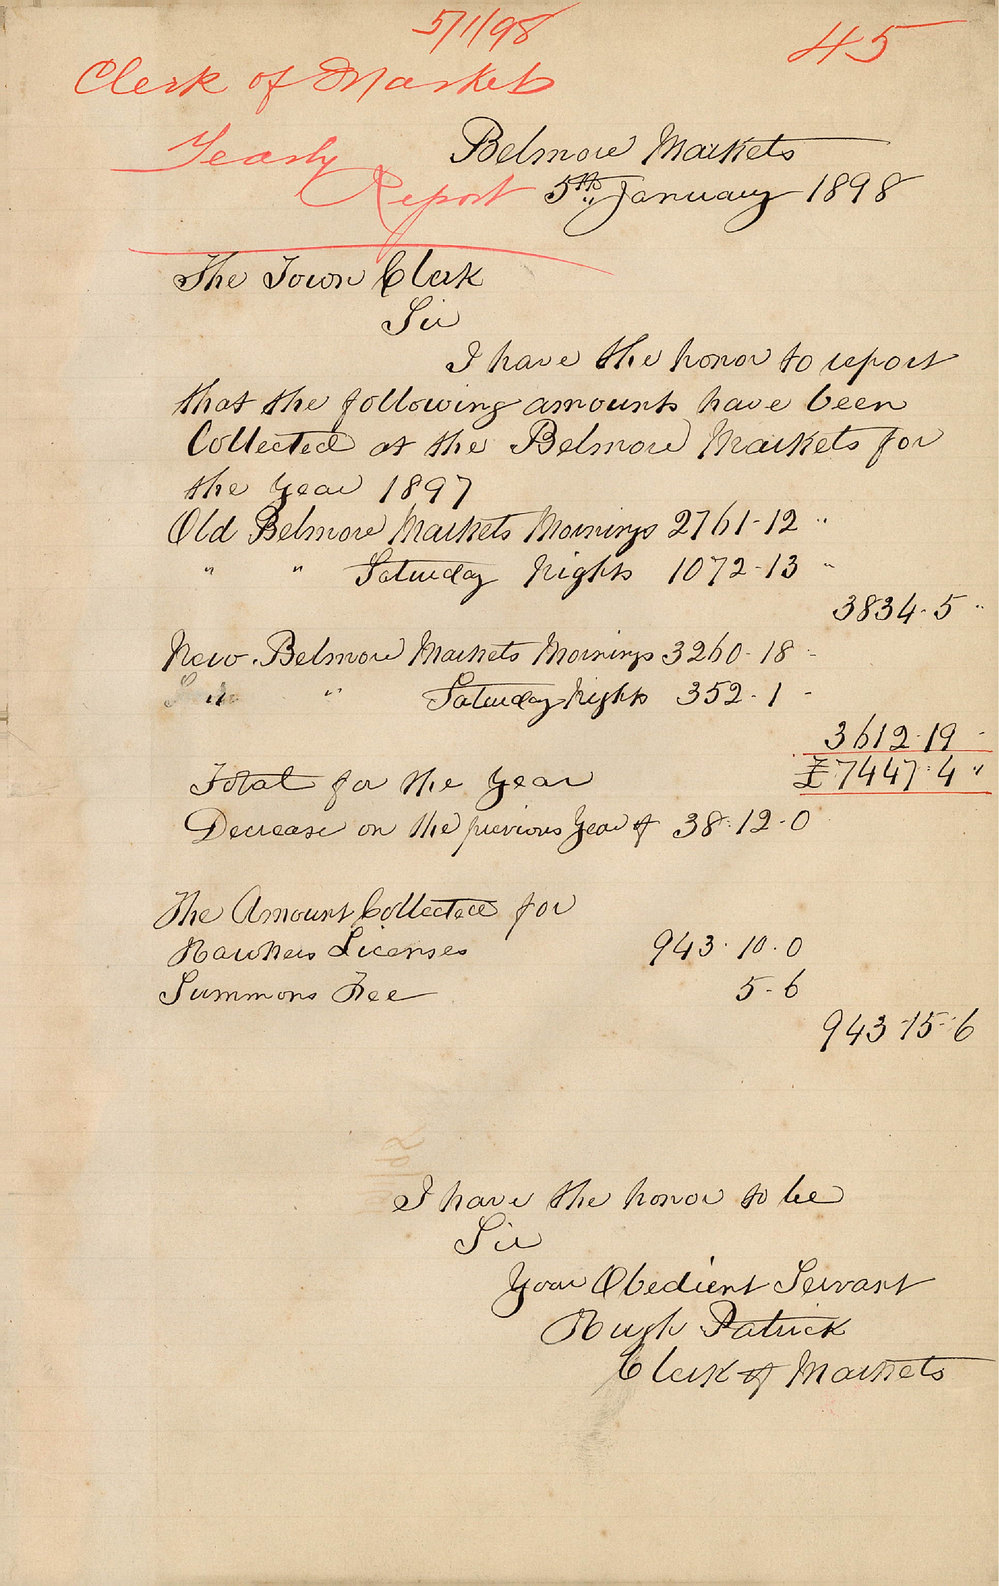 5/1/98
45
Clerk of Markets
Yearly
Report
Belmore Markets
5th January 1898
The Town Clerk
Sir
I have the honor to report
that the following amounts have been
Collected at the Belmore Markets for
the Year 1897
Old Belmore Markets Mornings 2761-12 "
" " Saturday Nights 1072-13 "
3834-5 "
New Belmore Markets Mornings 3260-18 -
" " Saturday Nights 352-1 -
3612-19 -
Total for the Year £7447-4 "
Decrease on the previous Year of 38-12-0
The Amount Collected for
Hawkers Licenses 943-10-0
Summons Fee 5-6
943-15-6
I have the honor to be
Sir
Your Obedient Servant
Hugh Patrick
Clerk of Markets